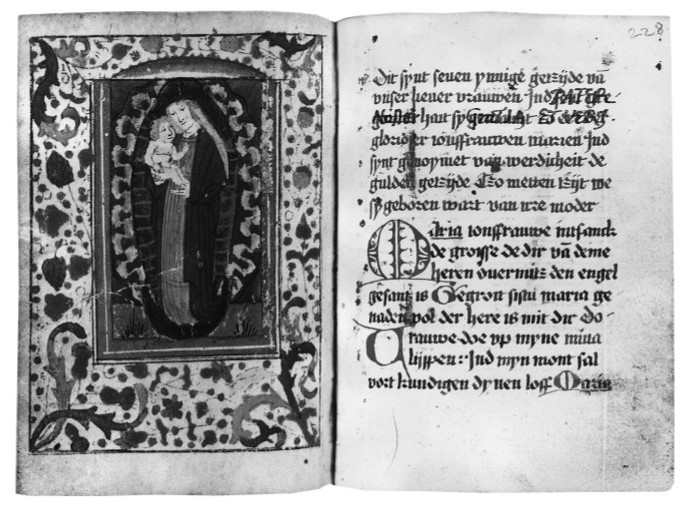 228
Dit synt seven ynnige getzijde vā
vnser liever vrauwen Ind
hait sy
glorioser ionffrauwen marien Ind
synt genoymet van werdicheit de
gulden getzijde Tzo metten tzijt we
sy geboren wart van irre moder
Maria ionffrauwe intfanck
de groisse de dir vā deme
heren ouermitz den engel
gesant is Gegroit sistu maria ge
naden vol der here is mit dir Do
Vrauwe doe vp myne
lijppen Ind myn mont sal
vort kundigen dynen loff Maria